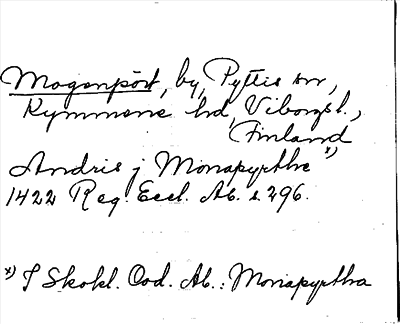 Mogenpört, by, Pyttis sn,
Kymmene hd, Viborgs l.,
(Finland
Andris j Monapyrthe *)
1422 Reg. Eccl. Ab. s. 296.
*) I Skokl. Cod. Ab.: Monapyrtha